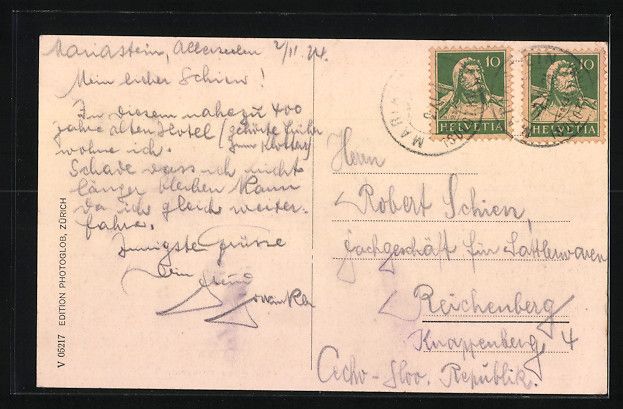 Mariastein, Allerseelen 2/11. 24.
Mein lieber Schien!
In diesem nahezu 400
Jahre alten Hotel (gehörte früher
zum Kloster)
wohne ich.
Schade dass ich nicht
länger bleiben kann
da ich gleich weiter-
fahre.
Innigste Grüsse
Dein Freund
V 05217 EDITION PHOTOGLOB, ZÜRICH
10
HELVETIA
10
HELVETIA
Herrn
Robert Schien,
Fachgeschäft für Sattlerwaren
Reichenberg
Knappenberg 4
Cecho-Slov. Republik.